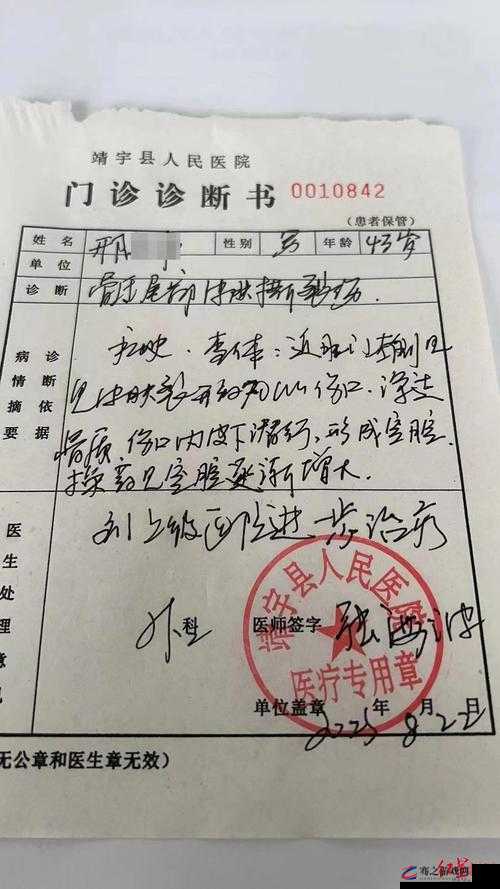 靖宇县人民医院
门诊诊断书 0010842
(患者保管)
姓名 邢 性别 男 年龄 43岁
单位
诊断 骶尾部皮肤撕裂伤.
病情摘要 诊断依据
查体:近肛门左侧见
皮肤裂开约 伤口.深达
骨质.伤口内皮下潜行.形成空腔.
换药见空腔逐渐增大.
医生处理意见
到上级医院进一步治疗
外科 医师签字 张海波
单位盖章 2025年8月22日
无公章和医生章无效)
靖宇县人民医院
医疗专用章